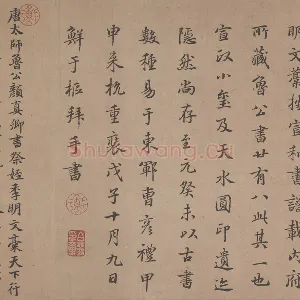 明文藁按宣和書譜載内府
所藏魯公書廿有八此其一也
宣政小璽及天水圓印遺迹
隱然尚存至元癸未以古書
數種易于東鄆曹彥禮甲
申来杭重裝戊子十月九日
鮮于樞拜手書
唐太師魯公顏真卿書祭姪季明文藁天下行